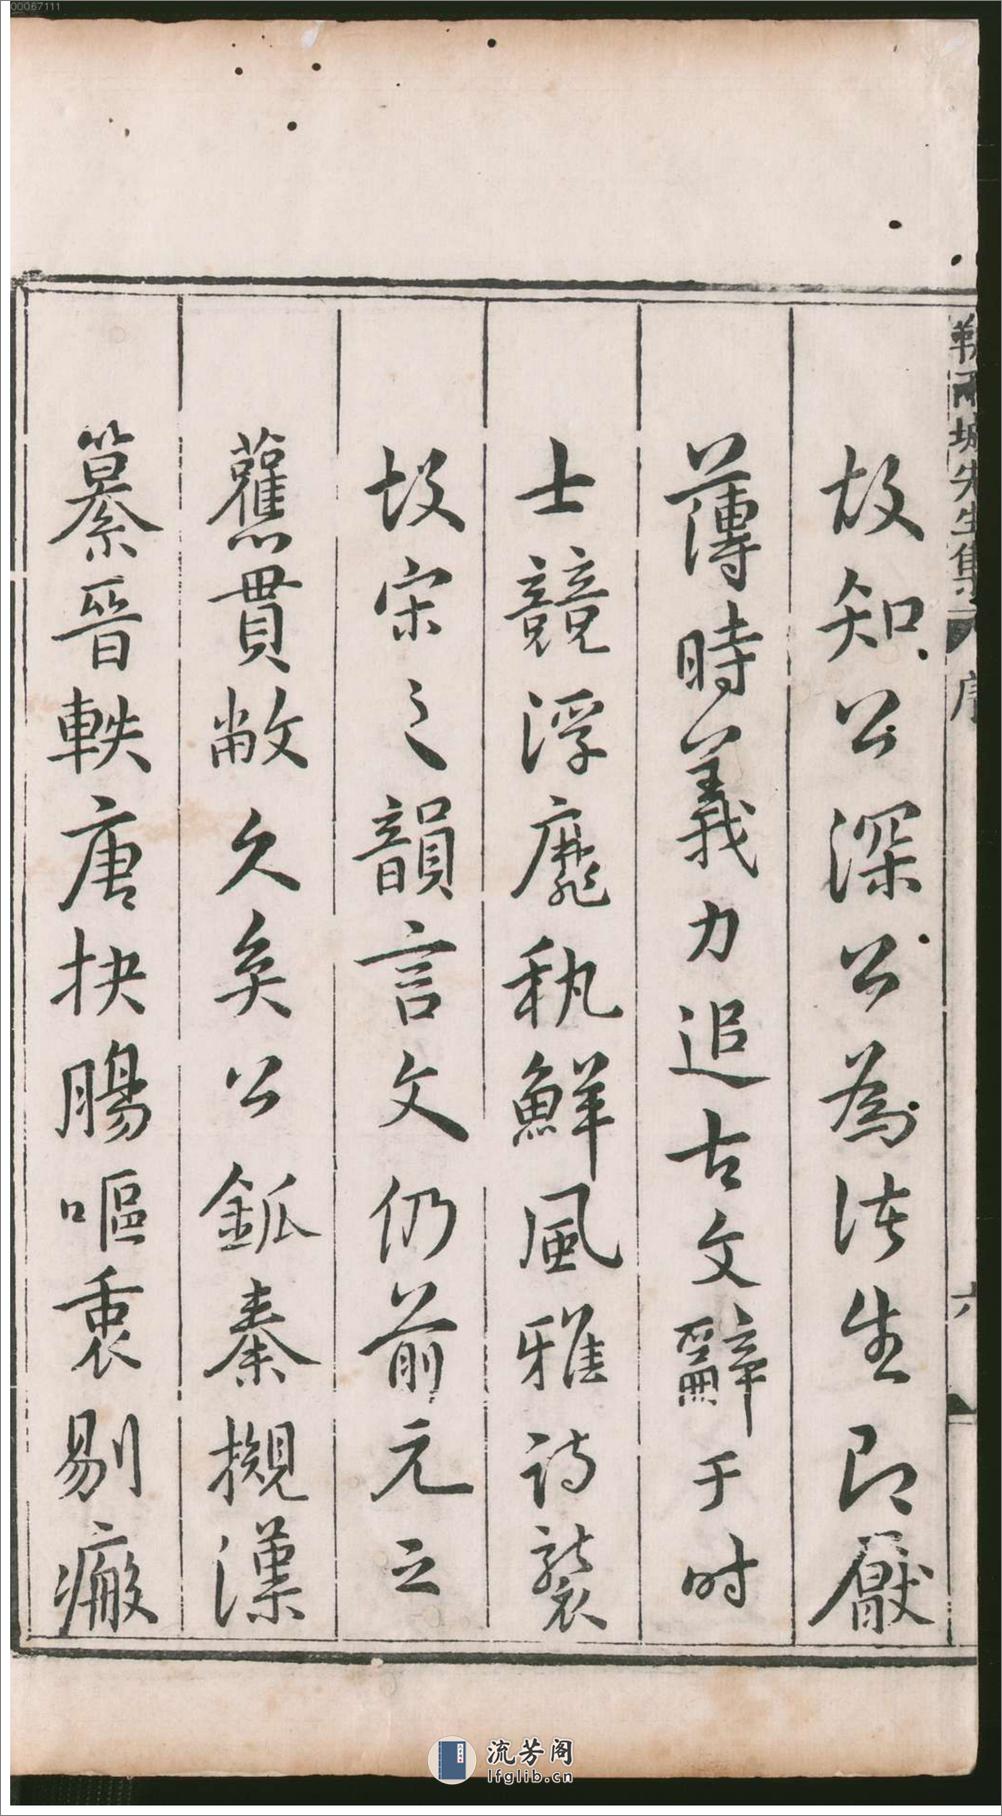 故知公深公為諸生即厭
薄時義力追古文辭于时
士競浮靡執鮮風雅詩襲
故宋之韻言文仍前元之
舊貫敝久矣公鈲秦摫漢
纂晉軼唐抉腸嘔衷剔癥
先生集
序
六
流芳阁
lfglib.cn
00067111